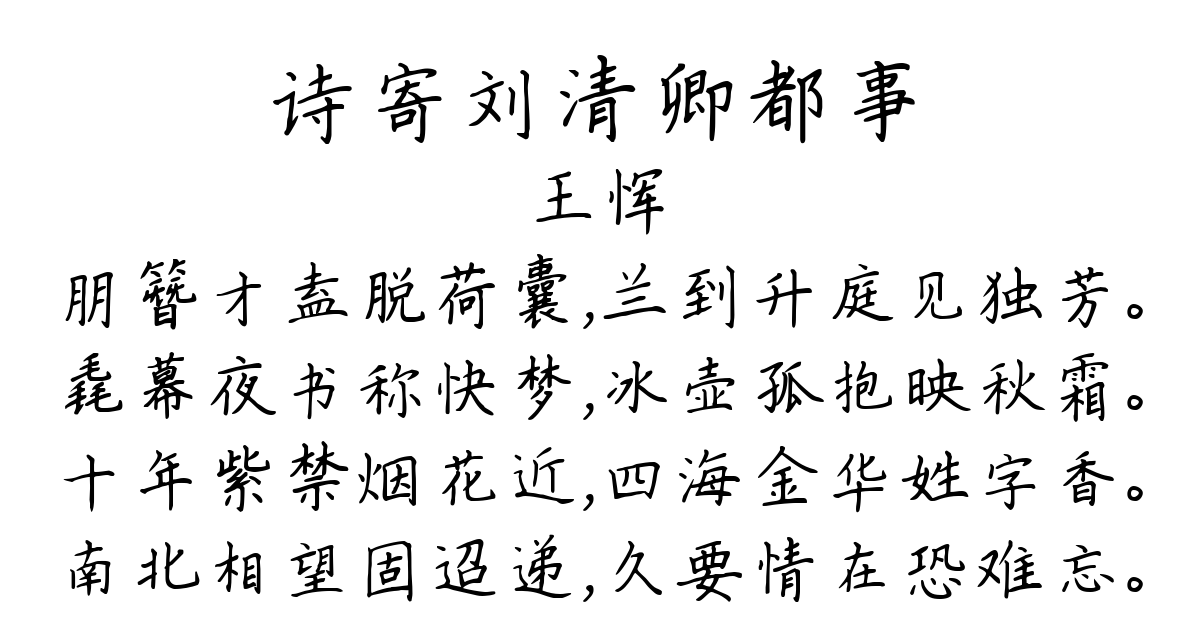 诗寄刘清卿都事
王恽
朋簪才盍脱荷囊,兰到升庭见独芳。
毳幕夜书称快梦,冰壶孤抱映秋霜。
十年紫禁烟花近,四海金华姓字香。
南北相望固迢递,久要情在恐难忘。